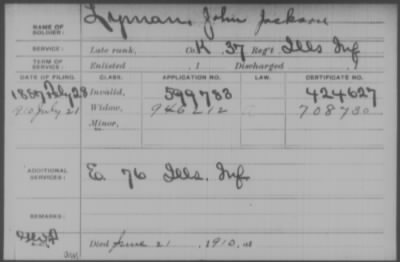 NAME OF SOLDIER: Lyman, John Jackson
SERVICE: Late rank, Co. K, 37 Reg't Ills Inf
TERM OF SERVICE: Enlisted , 1 Discharged , 1
DATE OF FILING. CLASS. APPLICATION NO. LAW. CERTIFICATE NO.
1887 July 28 Invalid, 599783 424627
1910 July 21 Widow, 946212 708730
Minor,
ADDITIONAL SERVICES: E. 76 Ills. Inf
REMARKS:
Died June 21, 1910, at